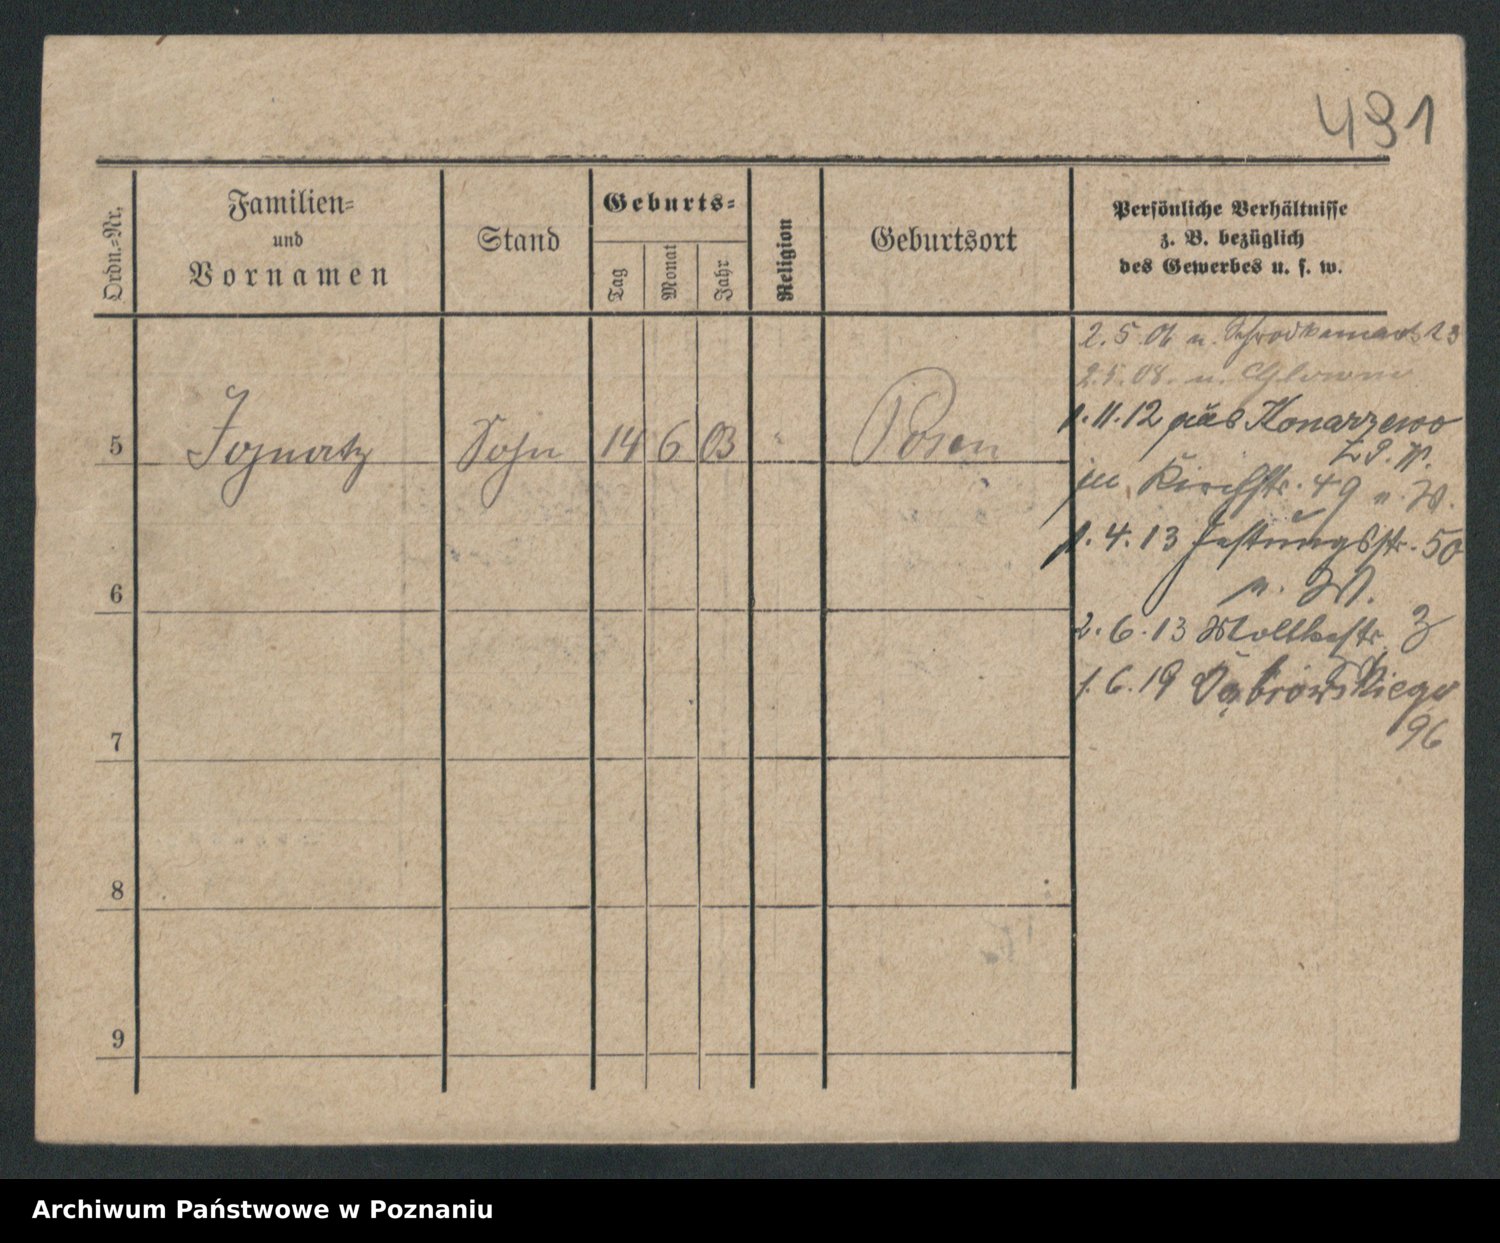 491
Ordn.-Nr.
Familien-
und
Vornamen
Stand
Geburts-
Tag
Monat
Jahr
Religion
Geburtsort
Persönliche Verhältnisse
z. B. bezüglich
des Gewerbes u. s. w.
2.5.06 n. Schrodkamarkt 13
2.5.08. n. Glowno
1.11.12 aus Konarzewo
5 Ignatz Sohn 14 6 03 Posen
in Kirchstr. 49 n. W.
1.4.13 Festungsstr. 50
n. W.
6
2.6.13 Moltkestr. 3
1.6.19 Dąbrowskiego
96
7
8
9
Archiwum Państwowe w Poznaniu